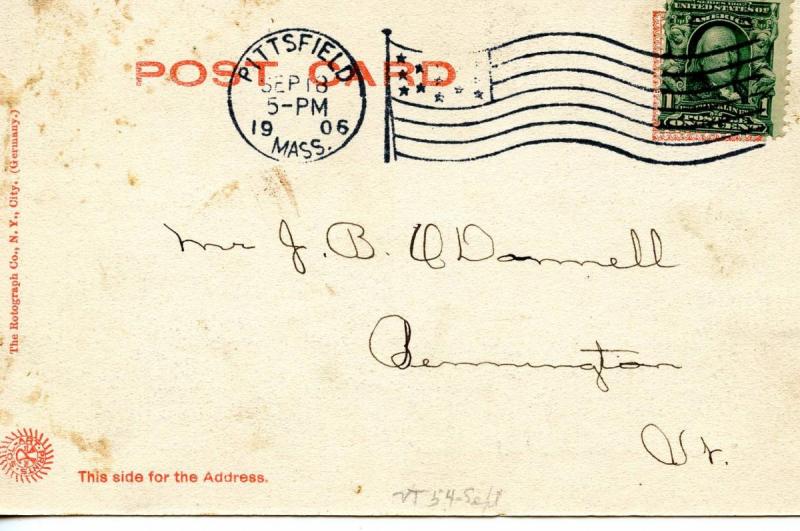 POST CARD
PITTSFIELD
SEP 18
5-PM
19 06
MASS.
UNITED STATES OF
AMERICA
1 1
ONE
Mr J. B. O'Donnell
Bennington
Vt.
The Rotograph Co., N. Y., City. (Germany.)
This side for the Address.
VT 54-